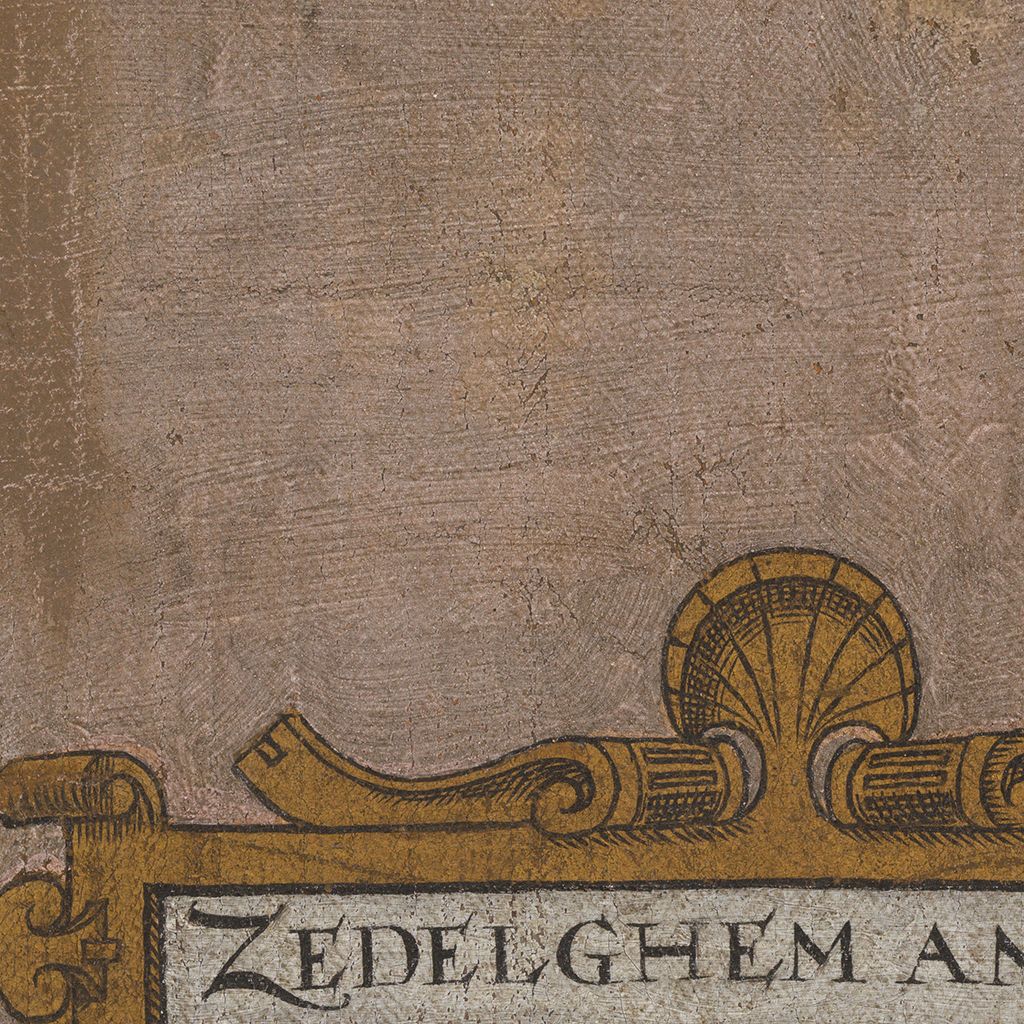 ZEDELGHEM AN